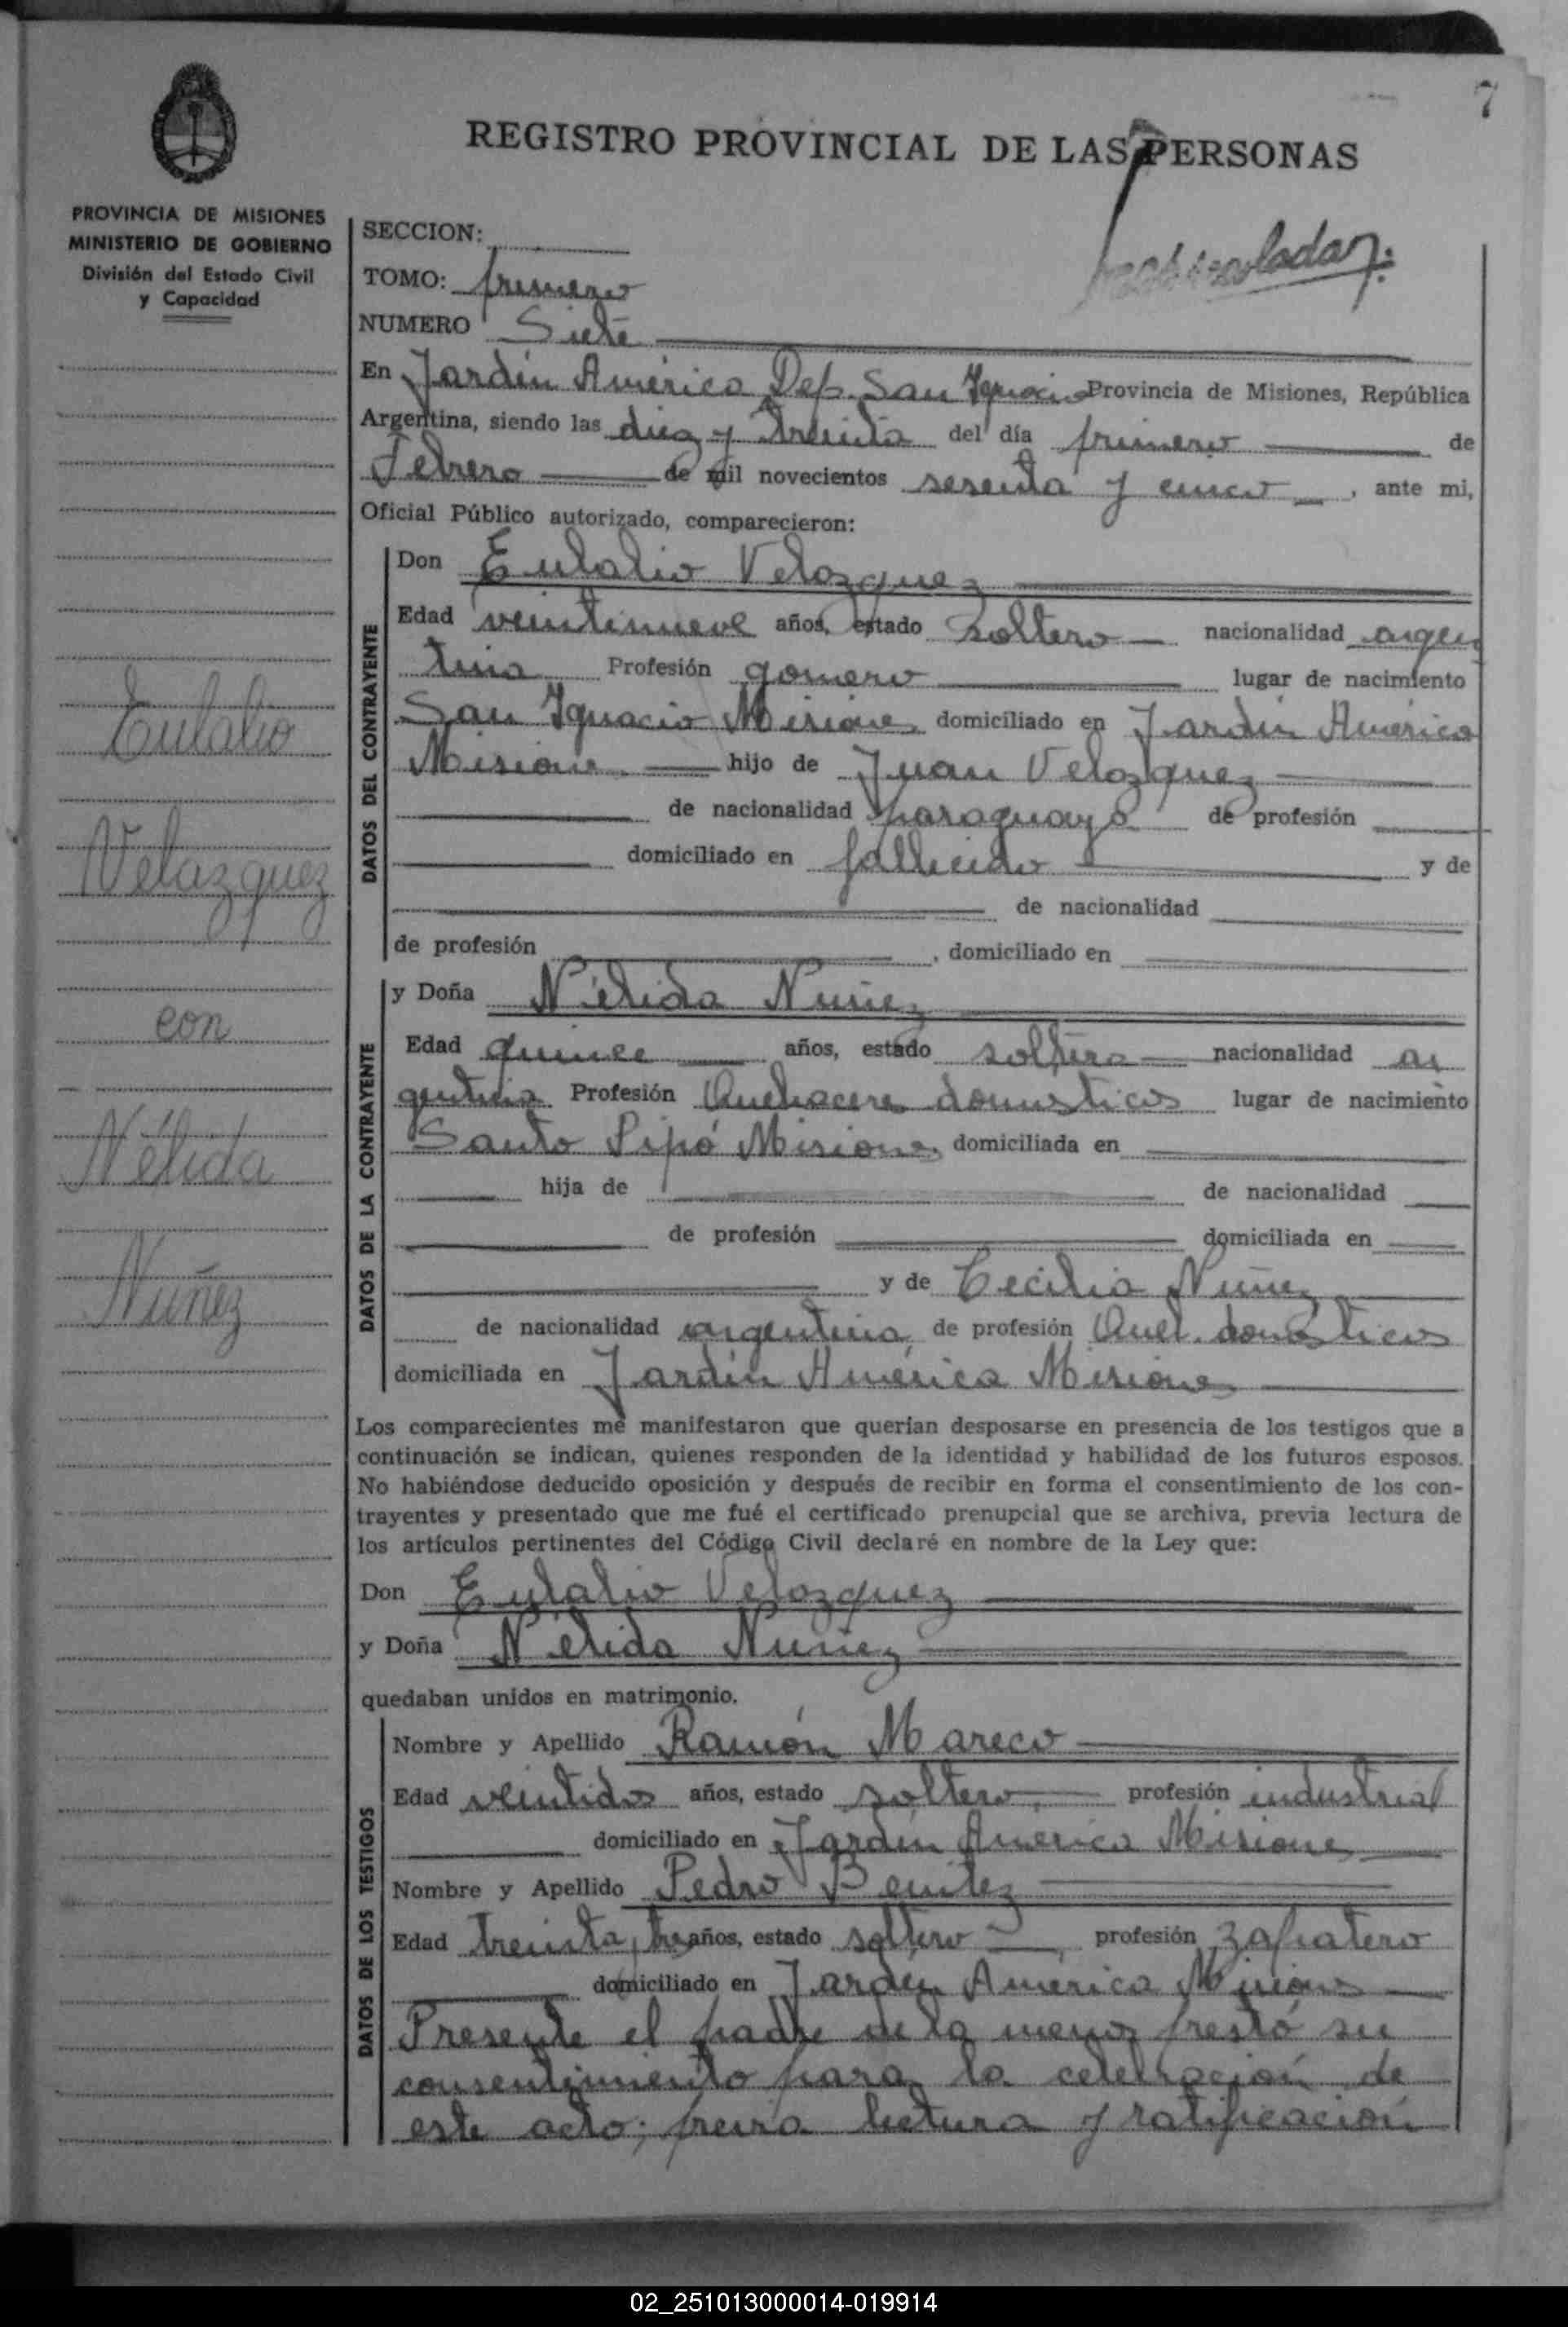 7
REGISTRO PROVINCIAL DE LAS PERSONAS
PROVINCIA DE MISIONES
MINISTERIO DE GOBIERNO
División del Estado Civil
y Capacidad
SECCION:
TOMO: primero
NUMERO Siete
En Jardín América Dep. San Ignacio Provincia de Misiones, República
Argentina, siendo las diez y treinta del día primero de
Febrero de mil novecientos sesenta y cinco, ante mi,
Oficial Público autorizado, comparecieron:
DATOS DEL CONTRAYENTE
Don Eulalio Velazquez
Edad veintinueve años, estado soltero nacionalidad argen
tina Profesión gomero lugar de nacimiento
San Ignacio Misiones domiciliado en Jardín América
Misiones hijo de Juan Velazquez
de nacionalidad paraguaya de profesión
domiciliado en fallecido y de
de nacionalidad
de profesión , domiciliado en
DATOS DE LA CONTRAYENTE
y Doña Nélida Nuñez
Edad quince años, estado soltera nacionalidad ar
gentina Profesión Quehaceres domesticos lugar de nacimiento
Santo Pipó Misiones domiciliada en
hija de de nacionalidad
de profesión domiciliada en
y de Cecilia Nuñez
de nacionalidad argentina de profesión Queh. domésticos
domiciliada en Jardín América Misiones
Eulalio
Velazquez
con
Nélida
Nuñez
Los comparecientes me manifestaron que querían desposarse en presencia de los testigos que a
continuación se indican, quienes responden de la identidad y habilidad de los futuros esposos.
No habiéndose deducido oposición y después de recibir en forma el consentimiento de los con-
trayentes y presentado que me fué el certificado prenupcial que se archiva, previa lectura de
los artículos pertinentes del Código Civil declaré en nombre de la Ley que:
Don Eulalio Velazquez
y Doña Nélida Nuñez
quedaban unidos en matrimonio.
DATOS DE LOS TESTIGOS
Nombre y Apellido Ramón Mareco
Edad veintidos años, estado soltero, profesión industrial
domiciliado en Jardín America Misiones
Nombre y Apellido Pedro Benitez
Edad treinta y tres años, estado soltero profesión zapatero
domiciliado en Jardín América Misiones
Presente el padre de la menor prestó su
consentimiento para la celebración de
este acto; previa lectura y ratificación
02_251013000014-019914